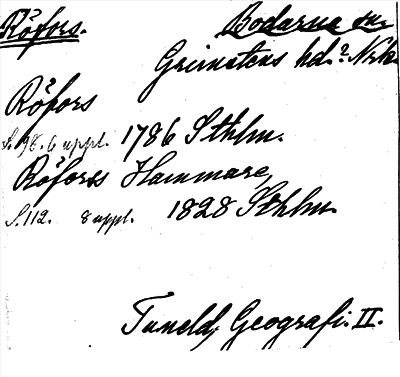 Röfors. Bodarna sn.
Grimstens hd.? Nrk.
Röfors
S. 98. 6 uppl. 1786 Sthlm.
Röfors Hammare,
S. 112. 8 uppl. 1828 Sthlm.
Tuneld, Geografi. II.